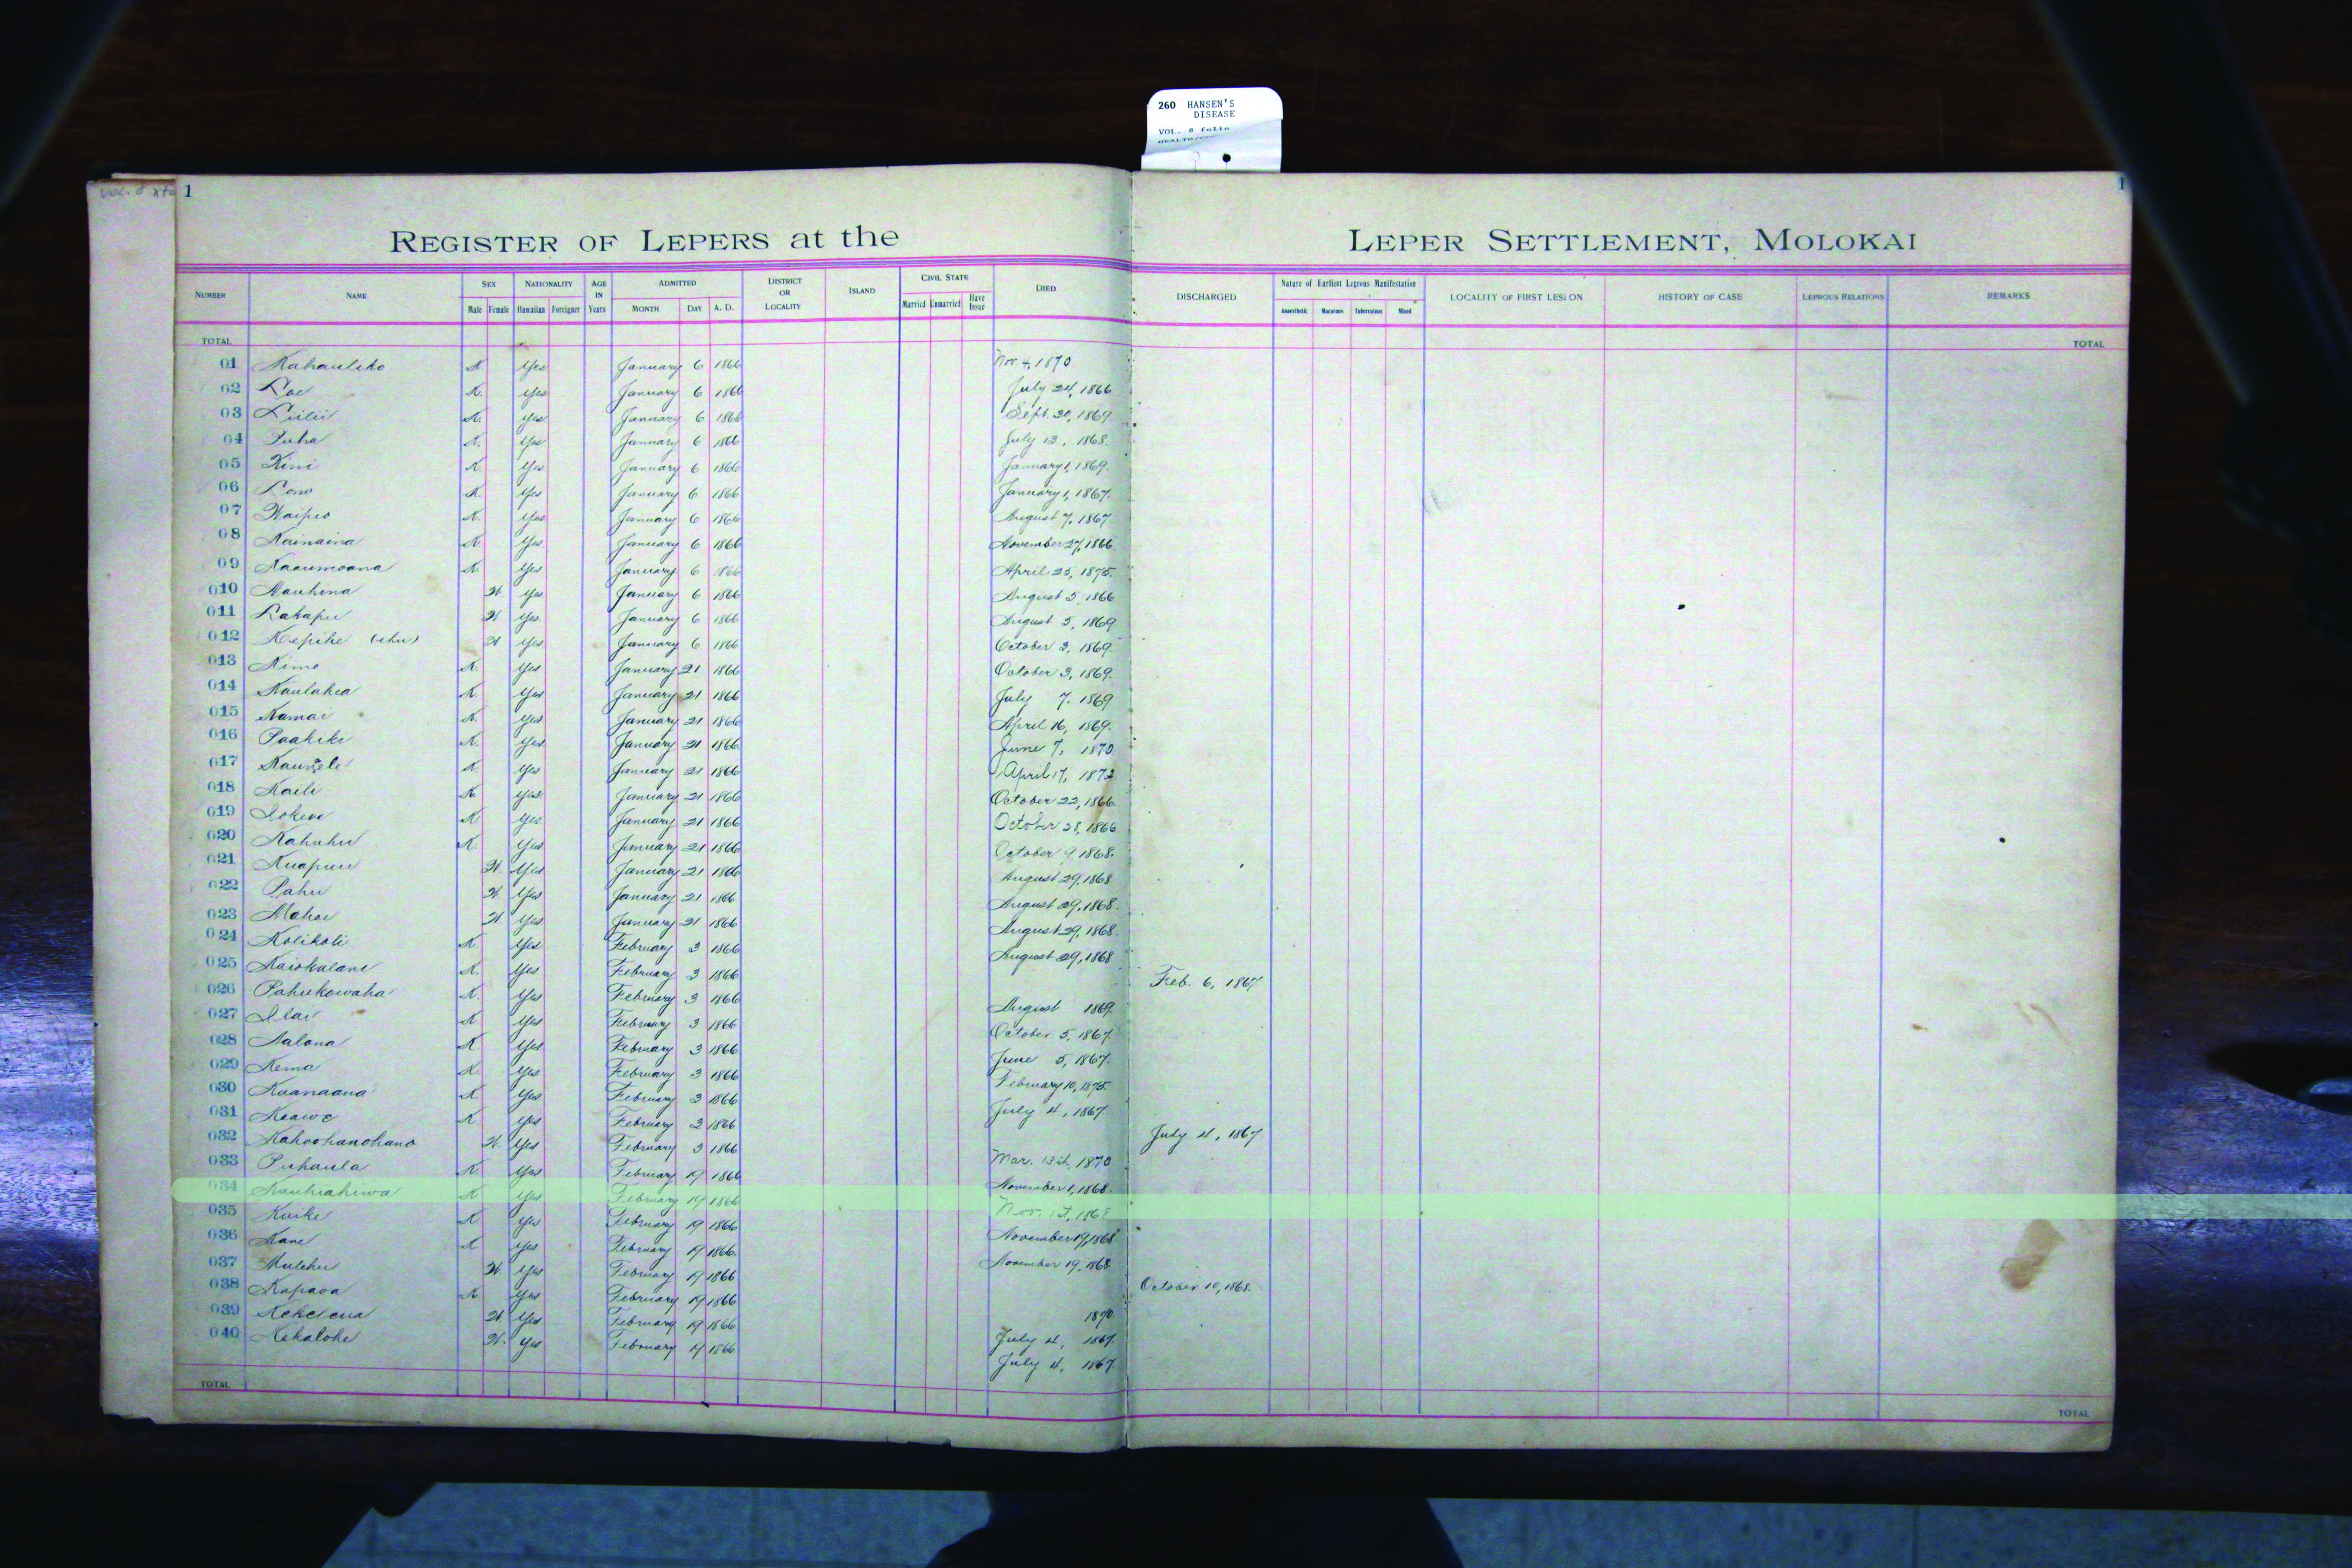 260 HANSEN'S
DISEASE
VOL. 8 folio
vol. 8
1
1
REGISTER OF LEPERS at the LEPER SETTLEMENT, MOLOKAI
NUMBER NAME SEX Male Female NATIONALITY Hawaiian Foreigner AGE IN Years ADMITTED MONTH DAY A. D. DISTRICT OR LOCALITY ISLAND CIVIL STATE Married Unmarried Have Issue DIED DISCHARGED Nature of Earliest Leprous Manifestation Anaesthetic Macurous Tuberculous Mixed LOCALITY OF FIRST LESION HISTORY OF CASE LEPROUS RELATIONS REMARKS
TOTAL TOTAL
01 Kahauliko K Yes January 6 1866 Nov. 4, 1870
02 Loe K. Yes January 6 1866 July 24, 1866
03 Liilii K. Yes January 6 1866 Sept. 20, 1869
04 Puha K. Yes January 6 1866 July 13, 1868.
05 Kini K. Yes January 6 1866 January 1, 1869.
06 Lono K. Yes January 6 1866 January 1, 1867.
07 Waipio K. Yes January 6 1866 August 7, 1867
08 Kainaina K. Yes January 6 1866 November 27, 1866
09 Kaaumoana K. Yes January 6 1866 April 25, 1875.
010 Nauhina W Yes January 6 1866 August 5, 1866
011 Lakapu W Yes January 6 1866 August 5, 1869
012 Kepihe (ehu) W Yes January 6 1866 October 3, 1869.
013 Kimo K. Yes January 21 1866 October 3, 1869.
014 Kaulahea K Yes January 21 1866 July 7. 1869
015 Kamai K. Yes January 21 1866 April 16, 1869.
016 Paakiki K. Yes January 21 1866 June 7, 1870
017 K. Yes January 21 1866 April 17, 1872
018 Kaili K. Yes January 21 1866 October 22, 1866.
019 Iokewe K Yes January 21 1866 October 28, 1866
020 Kahuhu K. Yes January 21 1866 October 9, 1868.
021 Kuapuu W. Yes January 21 1866 August 29, 1868
022 Pahu W Yes January 21 1866 August 29, 1868.
023 Mahoe W Yes January 21 1866 August 29, 1868.
024 Kolikoli K Yes February 3 1866 August 29, 1868
025 Kaiokalani K. Yes February 3 1866 Feb. 6, 1867
026 Pahukowaha K. Yes February 3 1866 August 1869.
027 Ilai K Yes February 3 1866 October 5, 1867.
028 Nalona K Yes February 3 1866 June 5, 1867.
029 Kema K. Yes February 3 1866 February 10, 1875
030 Kaanaana K Yes February 3 1866 July 4, 1867
031 Keawe K. Yes February 3 1866 July 4, 1867
032 Kahoohanohano W. Yes February 3 1866 Mar. 1870
033 Puhaula K Yes February 19 1866 November 1, 1868.
034 Kauhiahiwa K Yes February 19 1866 Nov. 1st, 1868
035 Kuike K Yes February 19 1866 November 19, 1868
036 Kane K Yes February 19 1866 November 19, 1868
037 Mulehu W. Yes February 19 1866 October 10, 1868.
038 Kapaoa K. Yes February 19 1866 1870
039 Kekelena W Yes February 19 1866 July 4, 1867.
040 Kekalohe W. Yes February 19 1866 July 4, 1867.
TOTAL TOTAL